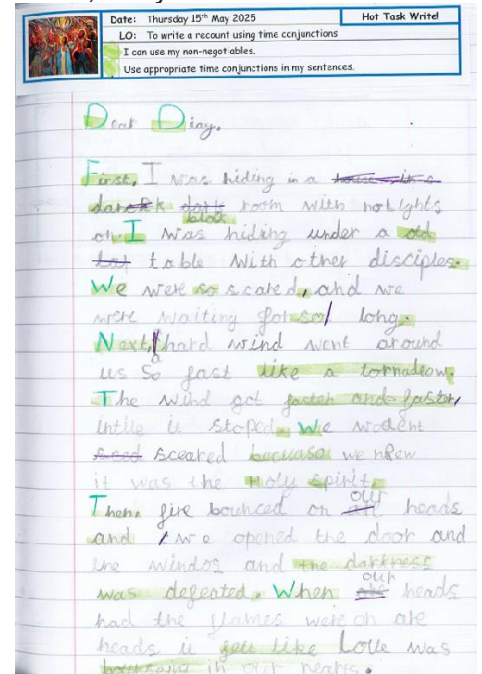 Date: Thursday 15th May 2025
Hot Task Write!
LO: To write a recount using time conjunctions
I can use my non-negotiables.
Use appropriate time conjunctions in my sentences.
Dear Diay.
First, I was hiding in a
dark black room with no lights
on. I was hiding under a old
table with other disciples.
We were so scared, and we
were waiting for so long.
Next, a hard wind went around
us so fast like a tornadeow.
The wind got faster and faster,
intile it stoped. We wodent
sceared because we nkew
it was the Holy spirit.
Then, fire bounced on our heads
and we opened the door and
the windos and the darkness
was defeated. When our heads
had the flames were on are
heads it felt like Love was
bouncing in our hearts.